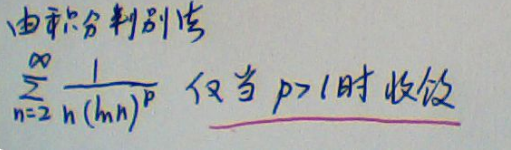 由积分判别法
∞
∑ 1/(n(ln n)^p) 仅当 p>1时 收敛
n=2